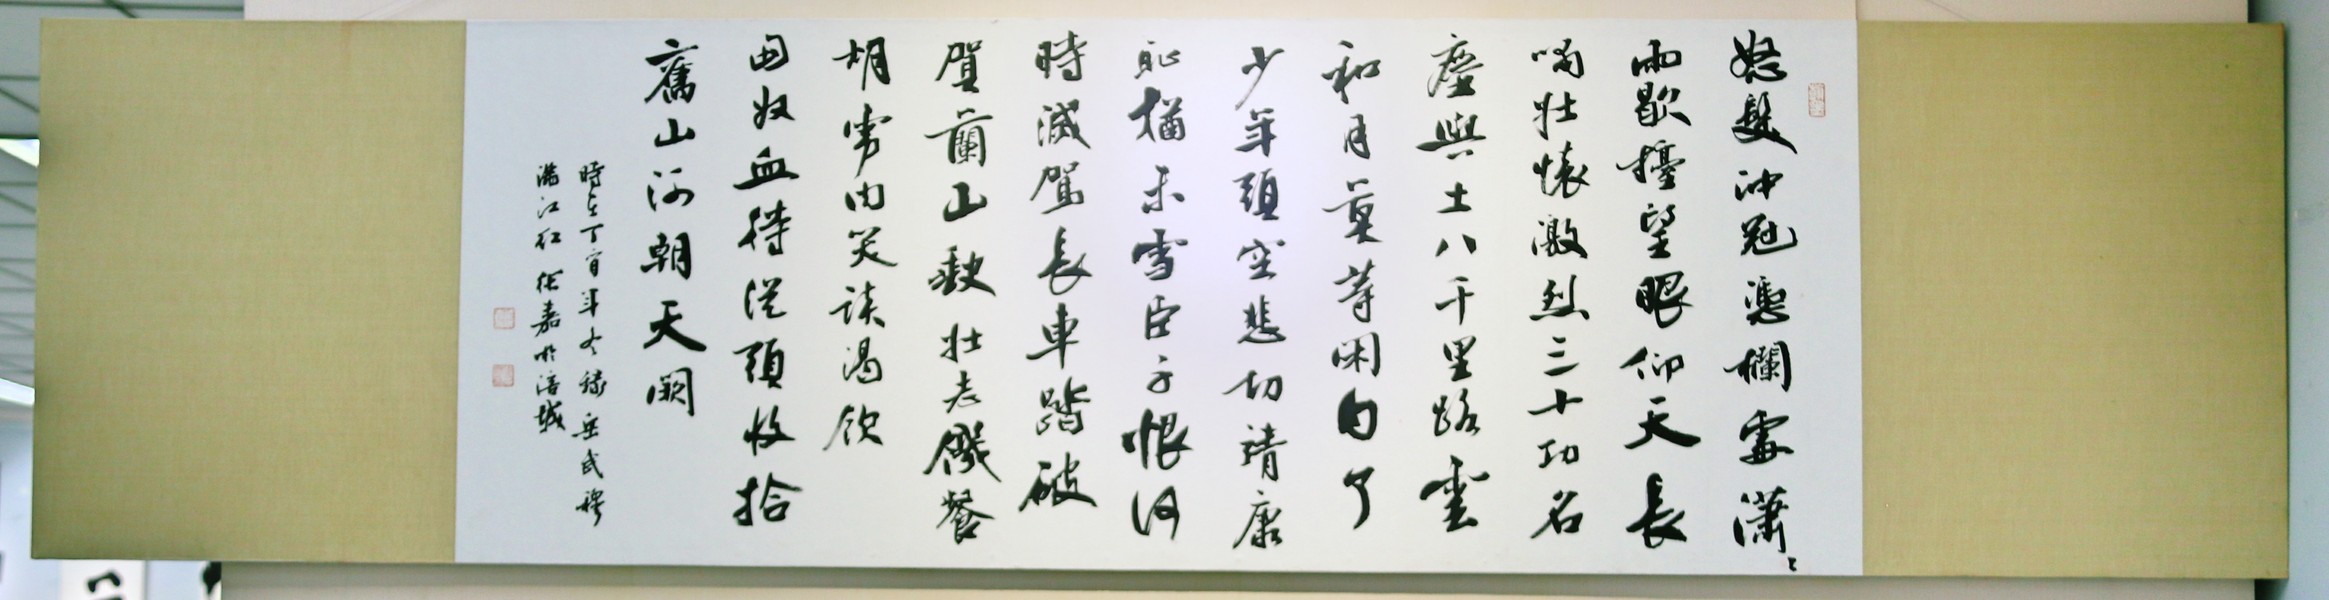 怒髮沖冠憑欄處瀟々
雨歇擡望眼仰天長
嘯壯懷激烈三十功名
塵與土八千里路雲
和月莫等閑白了
少年頭空悲切靖康
恥猶未雪臣子恨何
時滅駕長車踏破
賀蘭山缺壯志饑餐
胡虜肉笑談渴飲
匈奴血待從頭收拾
舊山河朝天闕
時在丁酉年冬錄岳武穆
滿江紅 徐嘉於涪城